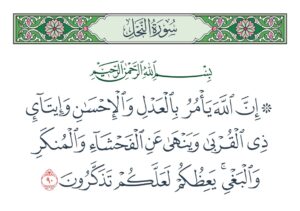 سُورَةُ النَّحْلِ
بِسْمِ اللَّهِ الرَّحْمَٰنِ الرَّحِيمِ
۞ إِنَّ اللَّهَ يَأْمُرُ بِالْعَدْلِ وَالْإِحْسَٰنِ وَإِيتَآئِ
ذِى الْقُرْبَىٰ وَيَنْهَىٰ عَنِ الْفَحْشَآءِ وَالْمُنكَرِ
وَالْبَغْىِ ۚ يَعِظُكُمْ لَعَلَّكُمْ تَذَكَّرُونَ ٩٠